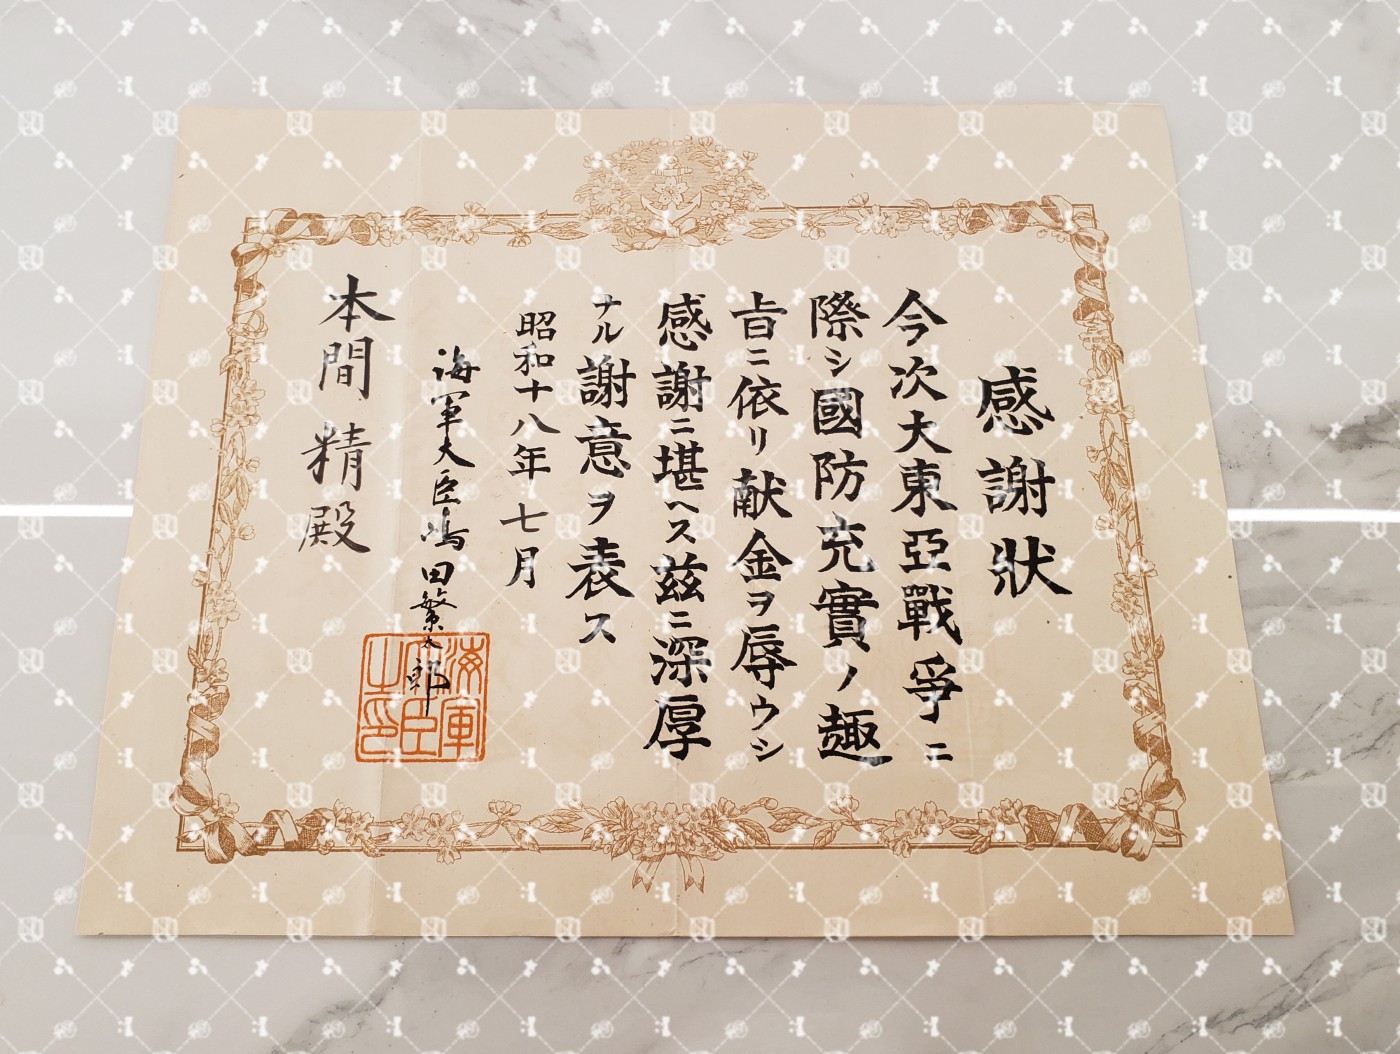 感謝狀
今次大東亞戰爭ニ
際シ國防充實ノ趣
旨ニ依リ献金ヲ辱ウシ
感謝ニ堪ヘス茲ニ深厚
ナル謝意ヲ表ス
昭和十八年七月
海軍大臣嶋田繁太郎
海軍大臣之印
本間精殿